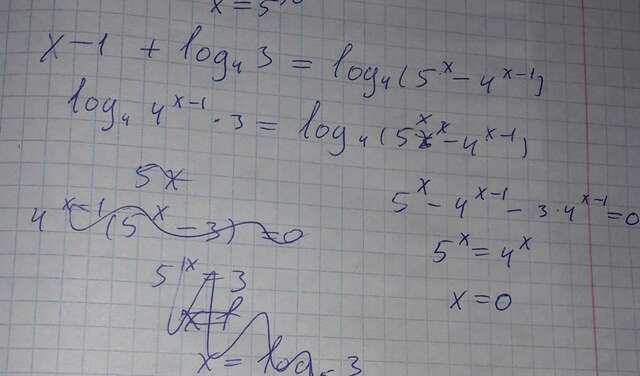 x = 5
x - 1 + log₄ 3 = log₄ (5ˣ - 4ˣ⁻¹)
log₄ 4ˣ⁻¹ · 3 = log₄ (5ˣ - 4ˣ⁻¹)
5x
4ˣ⁻¹ (5ˣ - 3) = 0
5ˣ = 3
x = log 3
5ˣ - 4ˣ⁻¹ - 3 · 4ˣ⁻¹ = 0
5ˣ = 4ˣ
x = 0